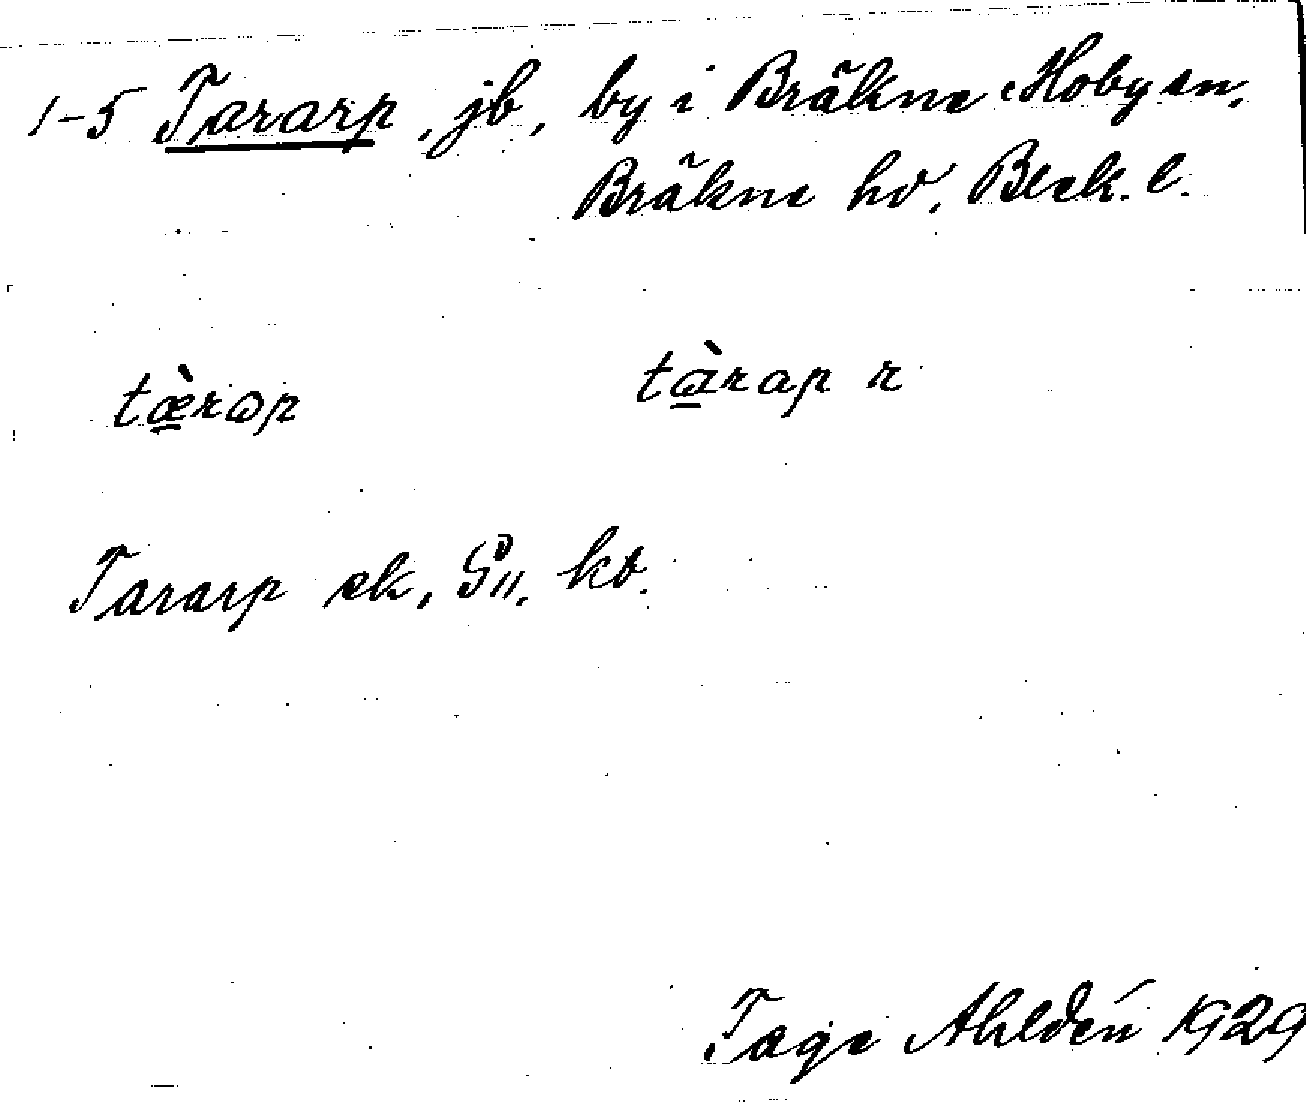 1-5 Tararp, jb, by i Bräkne Hoby sn,
Bräkne hd, Blek. l.
tæ̀rɷp tàrap r
Tararp ek, S11, kb.
Tage Ahldén 1929